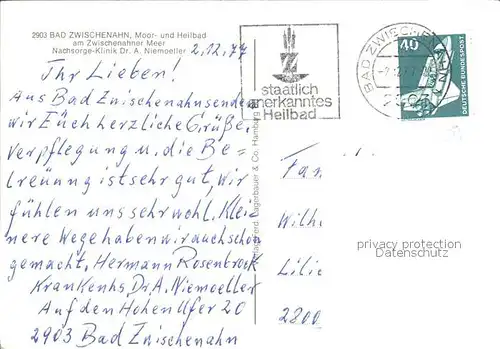 2903 BAD ZWISCHENAHN, Moor- und Heilbad
am Zwischenahner Meer
Nachsorge-Klinik Dr. A. Niemoeller
2.12.77
Ihr Lieben!
Aus Bad Zwischenahn senden
wir Euch herzliche Grüße.
Verpflegung u. die Be=
treuung ist sehr gut, wir
fühlen uns sehr wohl. Klei
nere Wege haben wir auch schon
gemacht. Hermann Rosenbrock
Krankenhs. Dr. A. Niemoeller
Auf den Hohen Ufer 20
2903 Bad Zwischenahn
staatlich
anerkanntes
Heilbad
BAD ZWISCHEN
40
DEUTSCHE BUNDESPOST
Ferd. Lagerbauer & Co. Hamburg
Fam
Wilh
Lilie
2800
privacy protection
Datenschutz